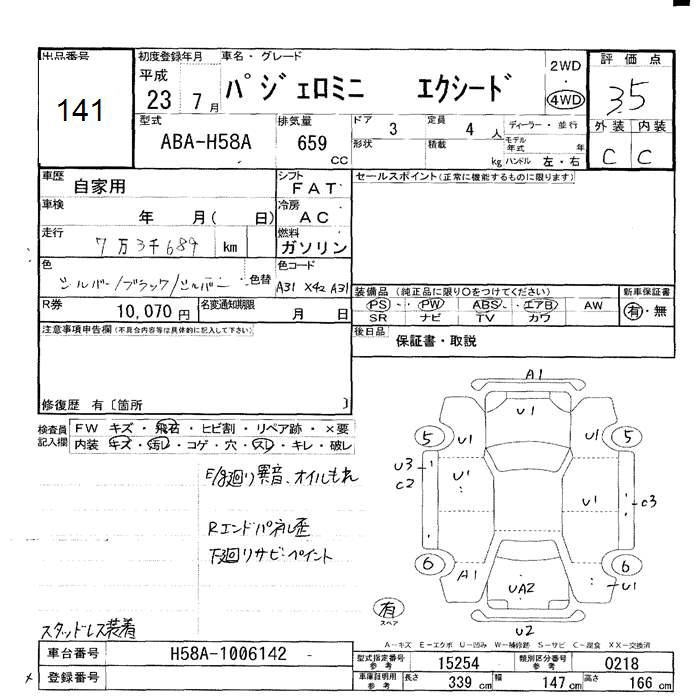 出品番号 初度登録年月 車名・グレード 2WD・4WD 評価点
141 平成 23 7月 パジェロミニ エクシード 3.5
型式 排気量 ドア 3 定員 4人 ディーラー・並行 外装 内装
ABA-H58A 659 CC 形状 積載 kg モデル年式 年 ハンドル 左・右 C C
車歴 自家用 シフト FAT セールスポイント(正常に機能するものに限ります)
車検 年 月( 日) 冷房 AC
走行 7万3千689 km 燃料 ガソリン
色 シルバー/ブラック/シルバー 色替 色コード A31 X42 A31
装備品 (純正品に限り〇をつけてください) 新車保証書
PS・PW・ABS・エアB AW 有・無
SR ナビ TV カワ
R券 10,070円 名変通知期限 月 日
後日品 保証書・取説
注意事項申告欄(不具合内容等は具体的に記入して下さい)
修復歴 有〔箇所 〕
検査員記入欄 FW キズ・飛石・ヒビ割・リペア跡・×要
内装 キズ・汚レ・コゲ・穴・スレ・キレ・破レ
E/g廻り異音、オイルもれ
Rエンドパネル歪
下廻りサビ・ペイント
スタッドレス装着
A1
U1
5 U1 U1 5
U3 C2 U1 U1 C3
6 A1 UA2 U1 6
有 スペア
U2
A-キズ E-エクボ U-凹み W-補修跡 S-サビ C-腐食 XX-交換済
車台番号 H58A-1006142
型式指定番号 参考 15254 類別区分番号 参考 0218
登録番号
車庫証明用 参考 長さ 339 cm 幅 147 cm 高さ 166 cm